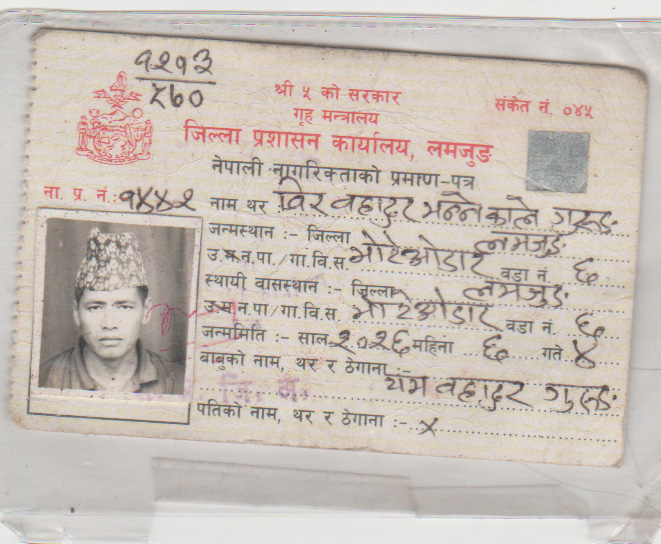 १२१३
५७०
श्री ५ को सरकार
गृह मन्त्रालय
संकेत नं. ०४५
जिल्ला प्रशासन कार्यालय, लमजुङ
नेपाली नागरिकताको प्रमाण-पत्र
ना. प्र. नं.: १४४२ नाम थर विर वहादुर भन्ने काले गुरुङ
जन्मस्थान :- जिल्ला लमजुङ
उ.म.न.पा./गा.वि.स. भोटेओडार वडा नं. ६
स्थायी वासस्थान :- जिल्ला लमजुङ
उ.म.न.पा/गा.वि.स. भोटेओडार वडा नं. ६
जन्ममिति :- साल २०२६ महिना ६ गते ४
बाबुको नाम, थर र ठेगाना यम वहादुर गुरुङ
पतिको नाम, थर र ठेगाना :- x